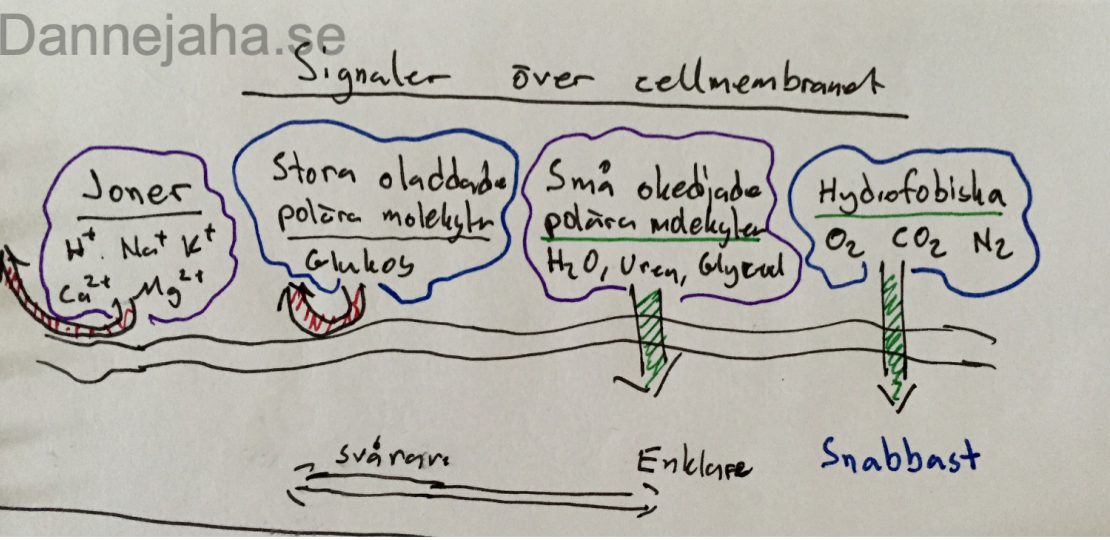 Dannejaha.se
Signaler över cellmembranet
Joner
H⁺. Na⁺ K⁺
Ca²⁺ Mg²⁺
Stora oladdade
polära molekyler
Glukos
Små oladdade
polära molekyler
H₂O, Urea, Glycerol
Hydrofobiska
O₂ CO₂ N₂
svårare
Enklare
Snabbast